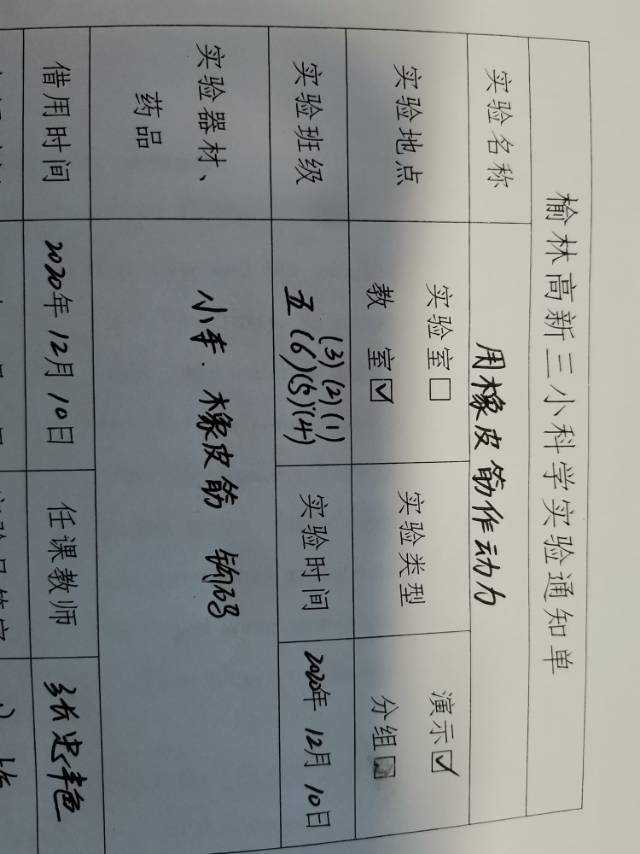 榆林高新三小科学实验通知单
实验名称 用橡皮筋作动力
实验地点 实验室□ 教 室☑ 实验类型 演示☑ 分组□
实验班级 (3)(2)(1)
五(6)(5)(4) 实验时间 2020年12月10日
实验器材、
药品 小车. 橡皮筋 钩码
借用时间 2020年12月10日 任课教师